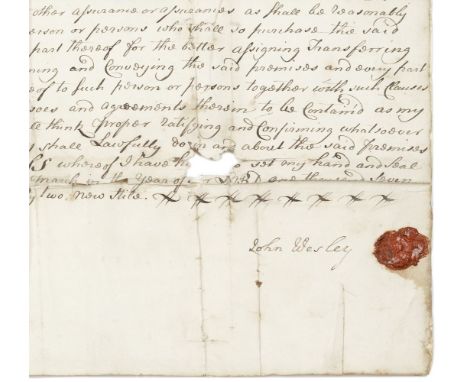 other assurance or assurances as shall be reasonably
erson or persons who shall so purchase the said
part thereof for the better assigning Transferring
ning and Conveying the said premises and every part
eof to such person or persons together with such Clauses
soes and agreements therein to be Contain'd as my
ll think proper ratifying and Confirming whatsoever
s shall Lawfully do in and about the said Premises
SS whereof I have set my hand and Seal
march in the Year of our Lord one thousand Seven
y two New Stile.
John Wesley